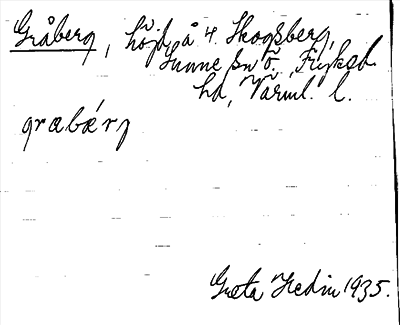 Gråberg, höjd å 4. Skogsberg,
Sunne sn ö., Fryksd.
hd, Värml. l.
grabærj
Greta Hedin 1935.